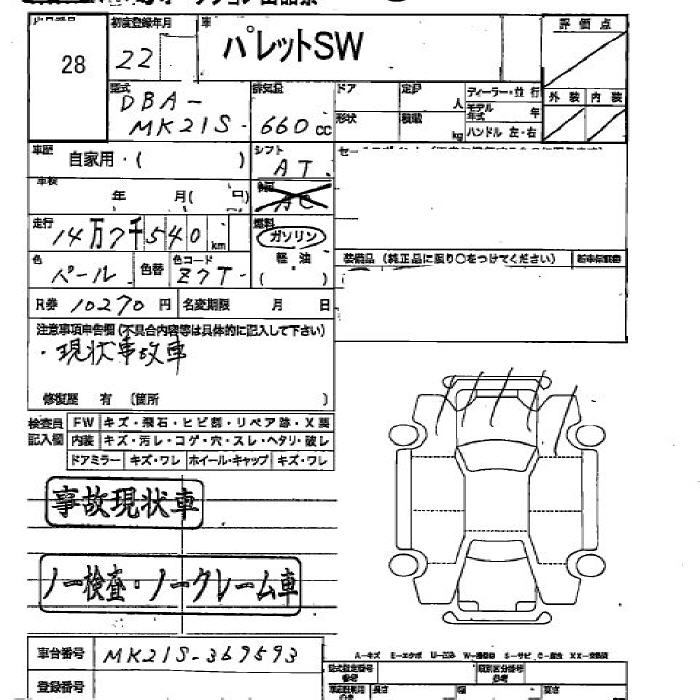 28
初度登録年月 車
22 パレットSW
評価点
型式 排気量 ドア 定員 人 ディーラー・並行
DBA-
MK21S 660cc
形状 積載 kg モデル年式 年
ハンドル 左・右
外装 内装
車歴 自家用・( ) シフト AT
車検 年 月( 日) AC
走行 14万7千540km 燃料 ガソリン
軽油
( )
色 パール 色替 色コード Z7T-
装備品(純正品に限り○をつけてください) 新車保証書
R券 10270円 名変期限 月 日
注意事項申告欄(不具合内容等は具体的に記入して下さい)
・現状事故車
修復歴 有 (箇所 )
検査員記入欄
FW キズ・飛石・ヒビ割・リペア跡・X要
内装 キズ・汚レ・コゲ・穴・スレ・ヘタリ・破レ
ドアミラー キズ・ワレ ホイール・キャップ キズ・ワレ
事故現状車
ノー検査・ノークレーム車
車台番号 MK21S-369593
A-キズ E-エクボ
登録番号
型式指定番号 類別区分番号
長さ 幅 高さ